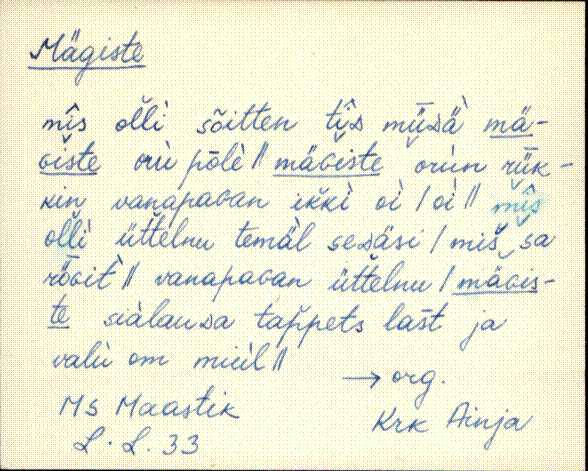 Mägiste
mîs olĺi sõitten tîs müüdä mä-
giste oru põle ‖ mägiste orun rük-
kin vanapagan ikki oi / oi ‖ mîs
olĺi üttelnu temäl sedäsi / miš sa
rögit ‖ vanapagan üttelnu / mägis-
te sialauda tappets last ja
valu om miul ‖
→ org.
Ms Maastik
L. L. 33
Krk Ainja